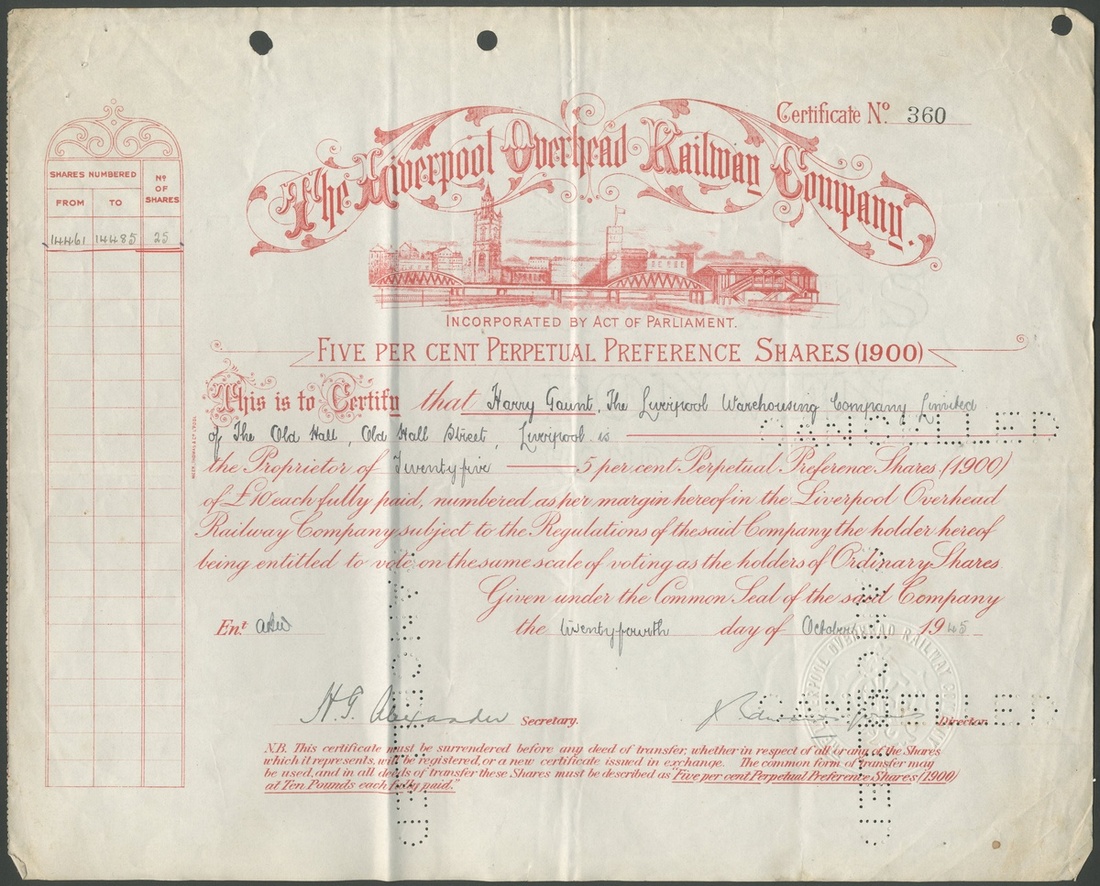 Certificate No. 360
The Liverpool Overhead Railway Company.
SHARES NUMBERED
No OF SHARES
FROM TO
14461 14485 25
INCORPORATED BY ACT OF PARLIAMENT.
FIVE PER CENT PERPETUAL PREFERENCE SHARES (1900)
This is to Certify that Harry Gaunt, The Liverpool Warehousing Company Limited
of The Old Hall, Old Hall Street, Liverpool is
CANCELLED
the Proprietor of Twentyfive 5 per cent Perpetual Preference Shares (1900)
of £10 each fully paid, numbered as per margin hereof in the Liverpool Overhead
Railway Company subject to the Regulations of the said Company the holder hereof
being entitled to vote on the same scale of voting as the holders of Ordinary Shares
Given under the Common Seal of the said Company
Ent.
the twentyfourth day of October 1945
LIVERPOOL OVERHEAD RAILWAY COMPANY
CANCELLED
CANCELLED
CANCELLED
H. G. Alexander Secretary.
Director.
N.B. This certificate must be surrendered before any deed of transfer, whether in respect of all or any of the Shares
which it represents, will be registered, or a new certificate issued in exchange. The common form of transfer may
be used, and in all deeds of transfer these Shares must be described as "Five per cent Perpetual Preference Shares (1900)
at Ten Pounds each fully paid."